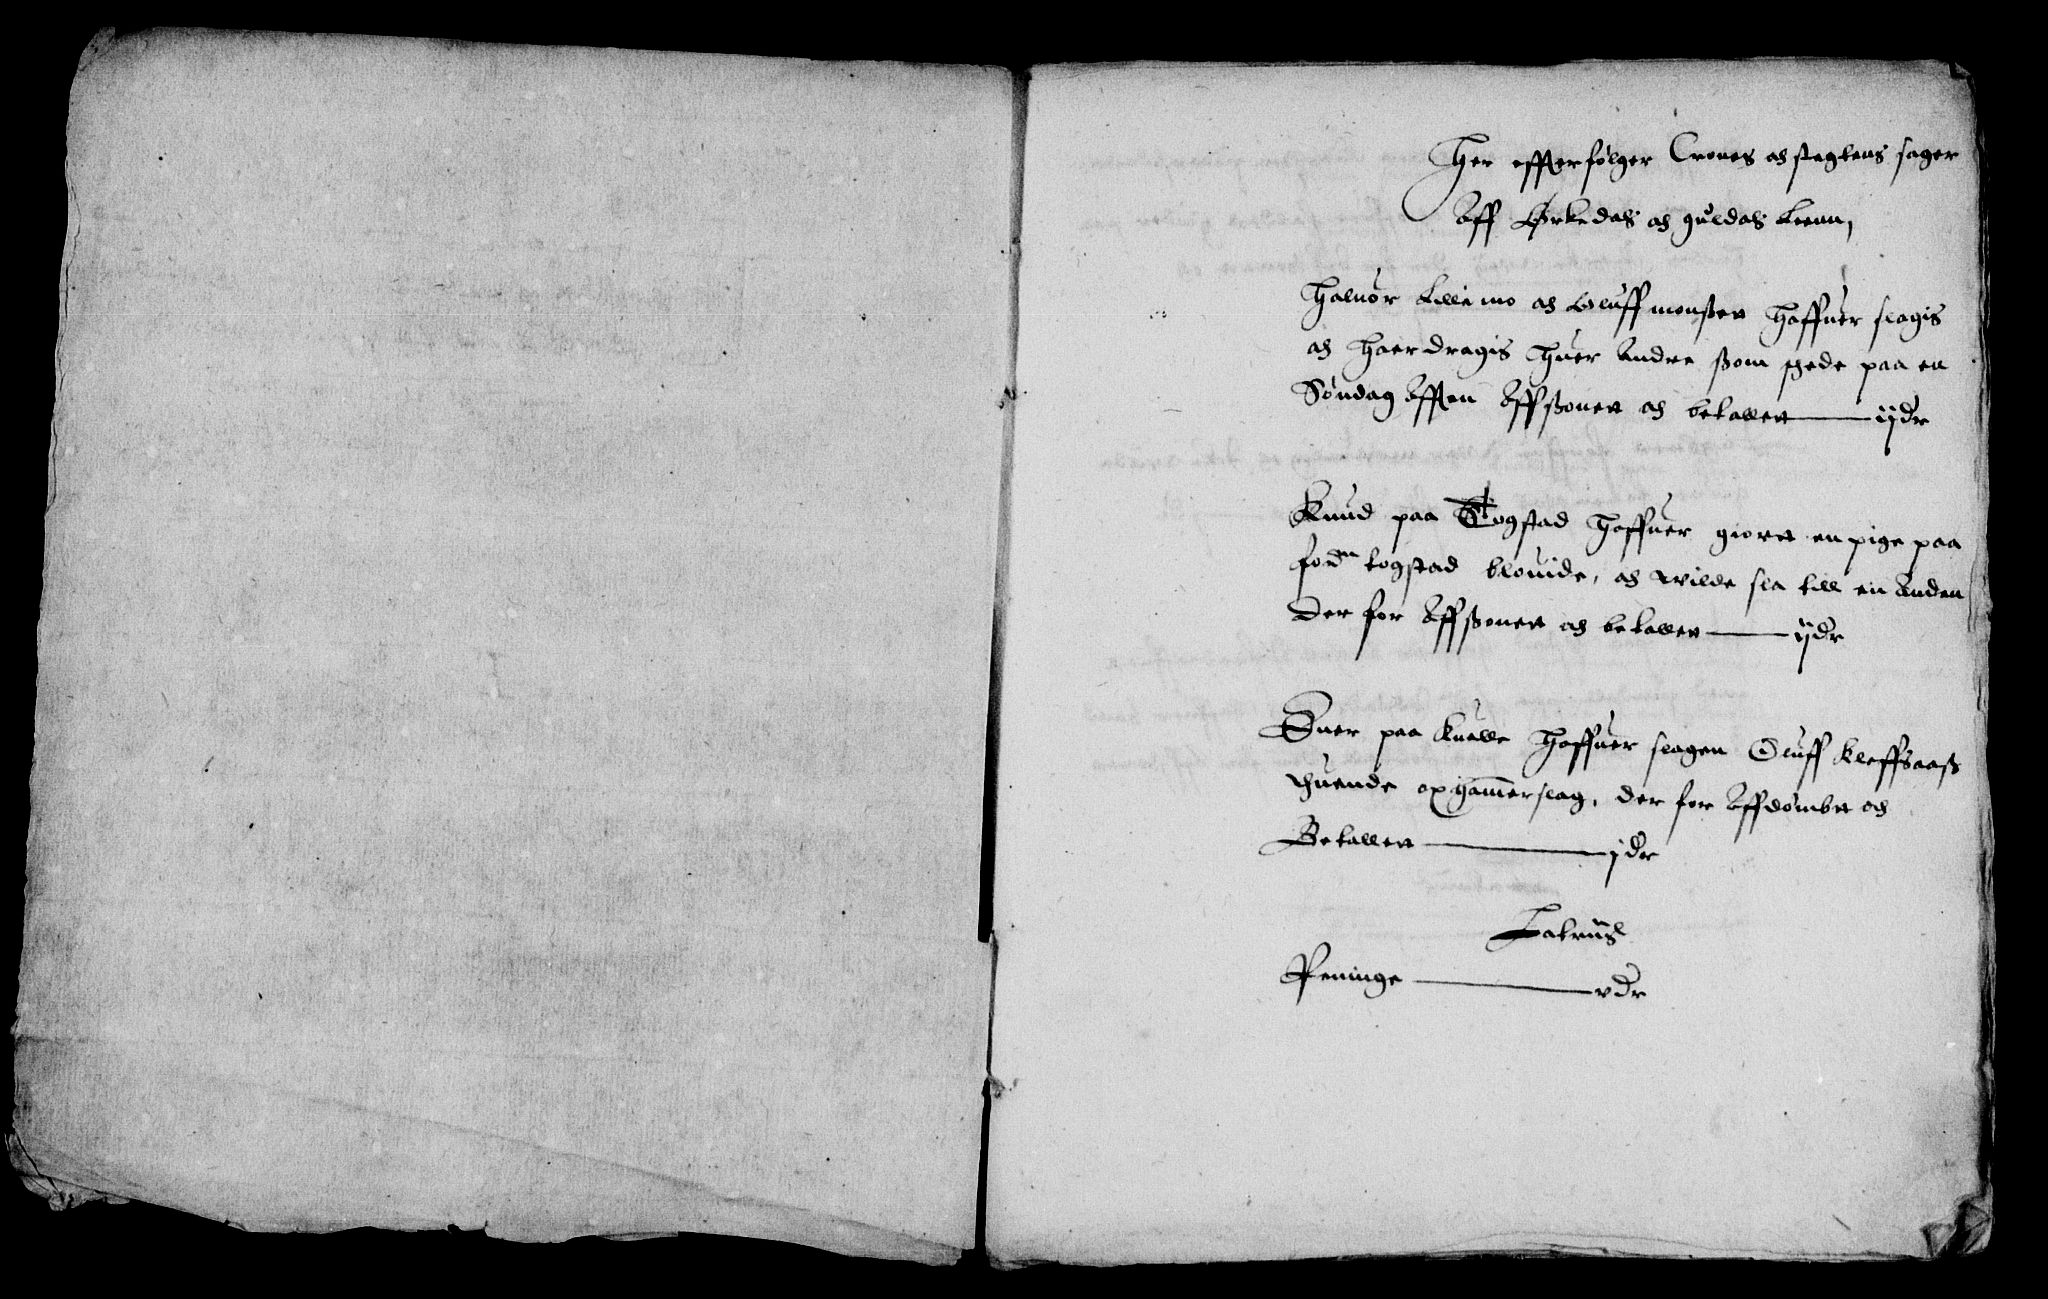 Her effterfølger Crones och stegtens sager
Aff Ørkedals och guldals Lenn,
Haluor Lillemo och Oluff monsten Haffuer slagis
och Haerdragis Huer Andre ßom skede paa en
Søndag Afften Affßonet och betallett ijdr
Knud paa Togstad Haffuer giortt en pige paa
ford:n togstad blouide, och wilde sla till en Anden
der for Affßonett och betallett ijdr
Euer paa Kualle Haffuer slagen Oluff Kleffsaaß
thuende øxhamerslag, der for Affdømbtt och
Betallett jdr
Latrus
Peninge vdr